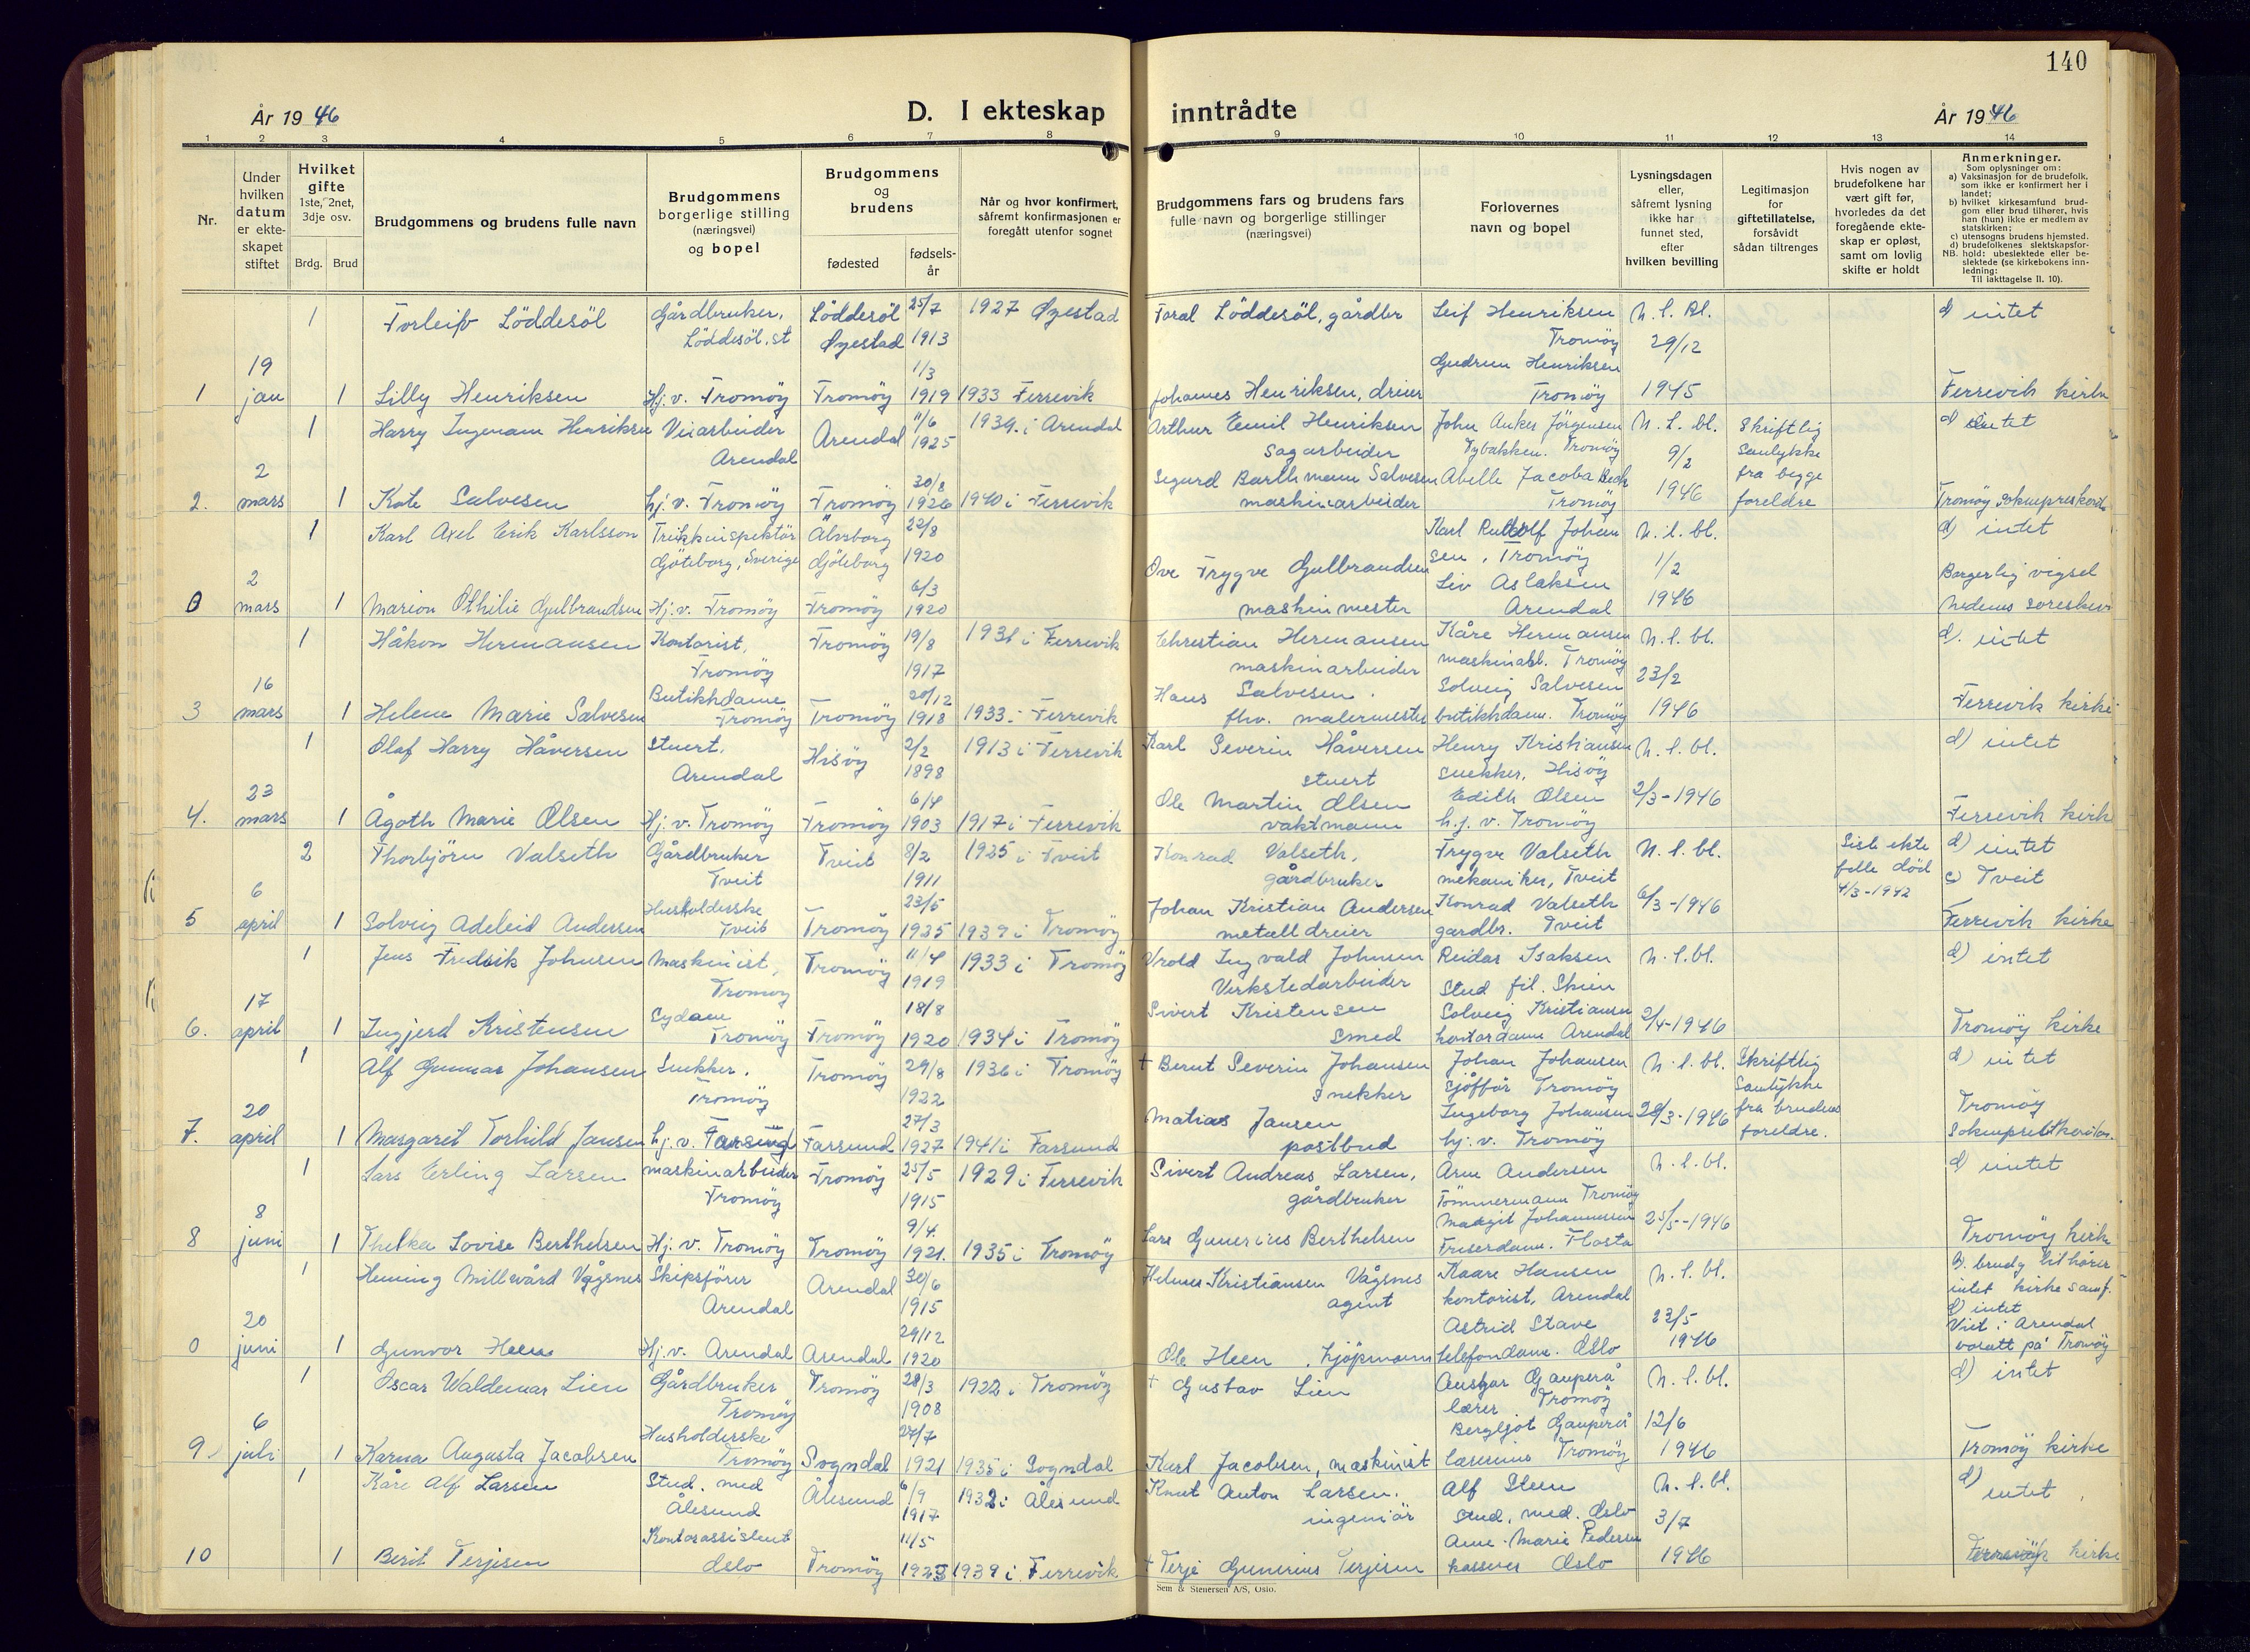 140
År 1946
D. I ekteskap inntrådte
År 1946
1 2 3 4 5 6 7 8 9 10 11 12 13 14
Nr.
Under hvilken datum er ekteskapet stiftet
Hvilket gifte 1ste, 2net, 3dje osv.
Brdg. Brud
Brudgommens og brudens fulle navn
Brudgommens borgerlige stilling (næringsvei) og bopel
Brudgommens og brudens
fødested
fødsels-år
Når og hvor konfirmert, såfremt konfirmasjonen er foregått utenfor sognet
Brudgommens fars og brudens fars fulle navn og borgerlige stillinger (næringsvei)
Forlovernes navn og bopel
Lysningsdagen eller, såfremt lysning ikke har funnet sted, efter hvilken bevilling
Legitimasjon for giftetillatelse, forsåvidt sådan tiltrenges
Hvis nogen av brudefolkene har vært gift før, hvorledes da det foregående ekteskap er opløst, samt om lovlig skifte er holdt
Anmerkninger.
Som oplysninger om:
a) Vaksinasjon for de brudefolk, som ikke er konfirmert her i landet;
b) hvilket kirkesamfund brudgom eller brud tilhører, hvis han (hun) ikke er medlem av statskirken;
c) utensogns brudens hjemsted.
d) brudefolkenes slektskapsforhold: ubeslektede eller beslektede (se kirkebokens innledning:
NB. Til iakttagelse II. 10).
1 Torleif Löddesöl Gårdbruker, Löddesöl. st Löddesöl Øyestad 25/7 1913 1927 Øyestad Taral Löddesöl, gårdbr Leif Henriksen Tromöy N. l. Bl. 29/12 d) intet
1 19 jan 1 Lilly Henriksen Hj. v. Tromöy Tromöy 1/3 1919 1933 Færvik Johannes Henriksen, dreier Gudrun Henriksen Tromöy 1945 Færvik kirke
1 Harry Ingemann Henriksen Veiarbeider Arendal Arendal 11/6 1925 1939 i Arendal Arthur Emil Henriksen sagarbeider John Anker Jörgensen Tybakken. Tromöy N. l. bl. 9/2 Skriftlig samtykke d) intet
2. 2 mars 1 Kate Salvesen hj. v. Tromöy Tromöy 30/8 1926 1940 i Færvik Sigurd Barthmann Salvesen maskinarbeider Abelle Jacoba Beck Tromöy 1946 fra begge foreldre Tromöy
1 Karl Axel Erik Karlsson Trikkinspektör Göteborg, Sverige Älvsborg Göteborg 22/8 1920 Karl Rudolf Johansen, Tromöy N. l. bl. 1/2 d) intet
0 2 mars 1 Marion Othilie Gulbrandsen Hj. v. Tromöy Tromöy 6/3 1920 Ove Trygve Gulbrandsen maskinmester Liv Aslaksen Arendal 1946 Borgerlig vigsel Nedenes
1 Håkon Hermansen Kontorist, Tromöy Tromöy 19/8 1917 i Færvik Christian Hermansen maskinarbeider Kåre Hermansen maskinarb. Tromöy N. l. bl. 23/2 d. intet
3 16 mars 1 Helene Marie Salvesen Butikkdame Tromöy Tromöy 20/12 1918 1933 i Færvik Hans Salvesen fhv. malermester Solveig Salvesen butikkdame. Tromöy 1946 Færvik kirke
1 Olaf Harry Håversen stuert. Arendal Hisöy 2/2 1898 1913 i Færvik Karl Severin Håversen stuert Henry Kristiansen snekker, Hisöy N. l. bl. d) intet
4. 23 mars 1 Ågoth Marie Olsen Hj. v. Tromöy Tromöy 6/4 1903 1917 i Færvik Ole Martin Olsen vaktmann Edith Olsen h.j. v. Tromöy 2/3-1946 Færvik kirke
2 Thorbjörn Valseth Gårdbruker Tveit Tveit 8/2 1911 1925 i Tveit Konrad Valseth, gårdbruker Trygve Valseth mekaniker, Tveit N. l. bl. Siste ektefelle död 4/3-1942 d) intet c) Tveit
5 6 april 1 Solveig Adeleid Andersen Husholderske Tveit Tromöy 23/5 1925 1939 i Tromöy Johan Kristian Andersen metalldreier Konrad Valseth gardbr. Tveit 6/3-1946 Færvik kirke
1 Jens Fredrik Johnsen Maskinist, Tromöy Tromöy 11/4 1919 1933 i Tromöy Vrold Ingvald Johnsen Verkstedarbeider Reidar Isaksen Stud fil. Skien N. l. bl. d) intet
6. 17 april 1 Ingjerd Kristensen Sydame Tromöy Tromöy 18/8 1920 1934 i Tromöy Sivert Kristensen Smed Solveig Kristiansen kontordame Arendal 2/4-1946 Tromöy kirke
1 Alf Gunnar Johansen Snekker. Tromöy Tromöy 29/8 1922 1936 i Tromöy + Bernt Severin Johansen Snekker Johan Johansen Sjåfför Tromöy N. l. bl. Skriftlig Samtykke d) intet
7. 20 april 1 Margaret Torhild Jansen hj. v. Farsund Farsund 27/3 1927 1941 i Farsund Matias Jansen postbud Ingeborg Johansen hj. v. Tromöy 28/3-1946 fra brudens foreldre. Tromöy
1 Lars Erling Larsen maskinarbeider Tromöy Tromöy 25/5 1915 1929 i Færvik Sivert Andreas Larsen, gårdbruker Arne Andersen Tömmermann Tromöy N. l. bl. d) intet
8 8 juni 1 Thelka Lovise Berthelsen Hj. v. Tromöy Tromöy 9/4. 1921. 1935 i Tromöy Lars Gunerius Berthelsen Margit Johannessen Friserdame. Flosta 25/5-1946 Tromöy kirke
1 Heming Millvård Vågsnes Skipsförer Arendal Arendal 30/6 1915 Helmer Kristiansen Vågsnes agent Kaare Hansen kontorist, Arendal N. l. bl. b. brudg tilhører intet kirkesamf. d) intet
0 20 juni 1 Gunvor Heen Hj. v. Arendal Arendal 29/12 1920 Ole Heen, kjöpmann Astrid Stave telefondame. Oslo 23/5 1946 Viet i Arendal bosatt på Tromöy
1 Oscar Waldemar Lien Gårdbruker Tromöy Tromöy 28/3 1908 1922 i Tromöy + Gustav Lien Ansgar Gauperå lærer Tromöy N. l. bl. 12/6 d) intet
9 6 juli 1 Karna Augusta Jacobsen Husholderske Tromöy Sogndal 27/7 1921 1935 i Sogndal Karl Jacobsen, maskinist Bergljot Gauperå Tromöy 1946 Tromöy kirke
1 Kåre Alf Larsen Stud. med Ålesund Ålesund 6/9 1917 1932 i Ålesund Knut Anton Larsen. ingeniör Alf Steen stud. med. Oslo N. l. bl. 3/7 d) intet
10 1 Berit Terjesen Kontorassistent Oslo Tromöy 11/5 1925 1939 i Færvik + Terje Gunerius Terjesen Anne-Marie Pedersen kasserer Oslo 1946 kirke
Sem & Stenersen A/S, Oslo.